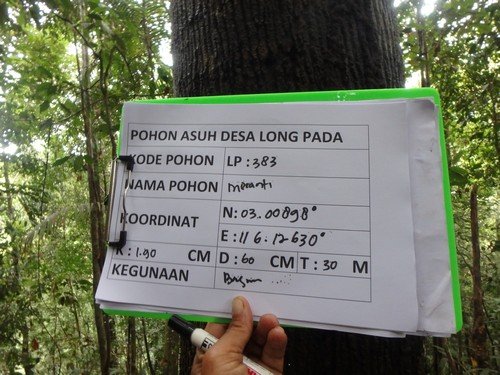 POHON ASUH DESA LONG PADA
KODE POHON LP : 383
NAMA POHON Meranti
KOORDINAT N: 03.00898°
E : 116.12630°
K : 1.90 CM D : 60 CM T : 30 M
KEGUNAAN